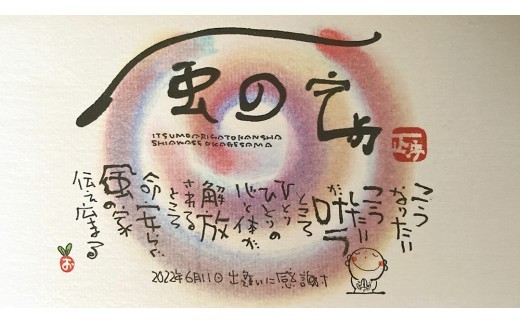 風の家
ITSUMOARIGATOKANSHA
SHIAWASEOKAGESAMA
こう
なりたい
こう
したい
が
叶う
ところ
ひとり
ひとりの
心と体が
解放
される
ところ
命・安らぐ
風の家
伝え広まる
お
2022年6月11日 出逢いに感謝